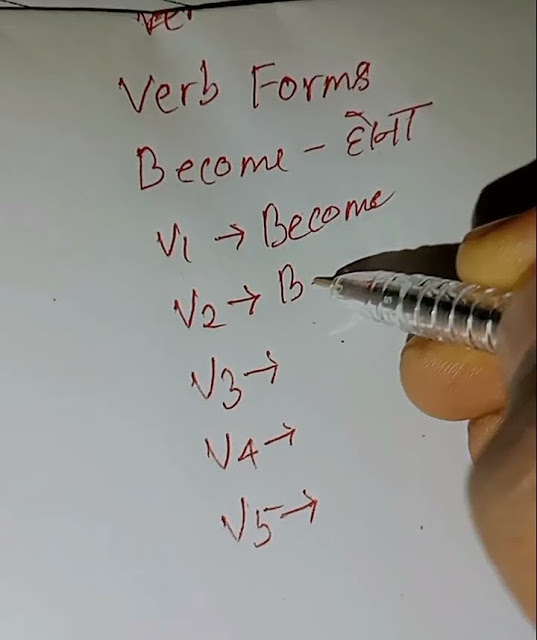 Ver
Verb Forms
Become - होना
V1 → Become
V2 → B
V3 →
V4 →
V5 →